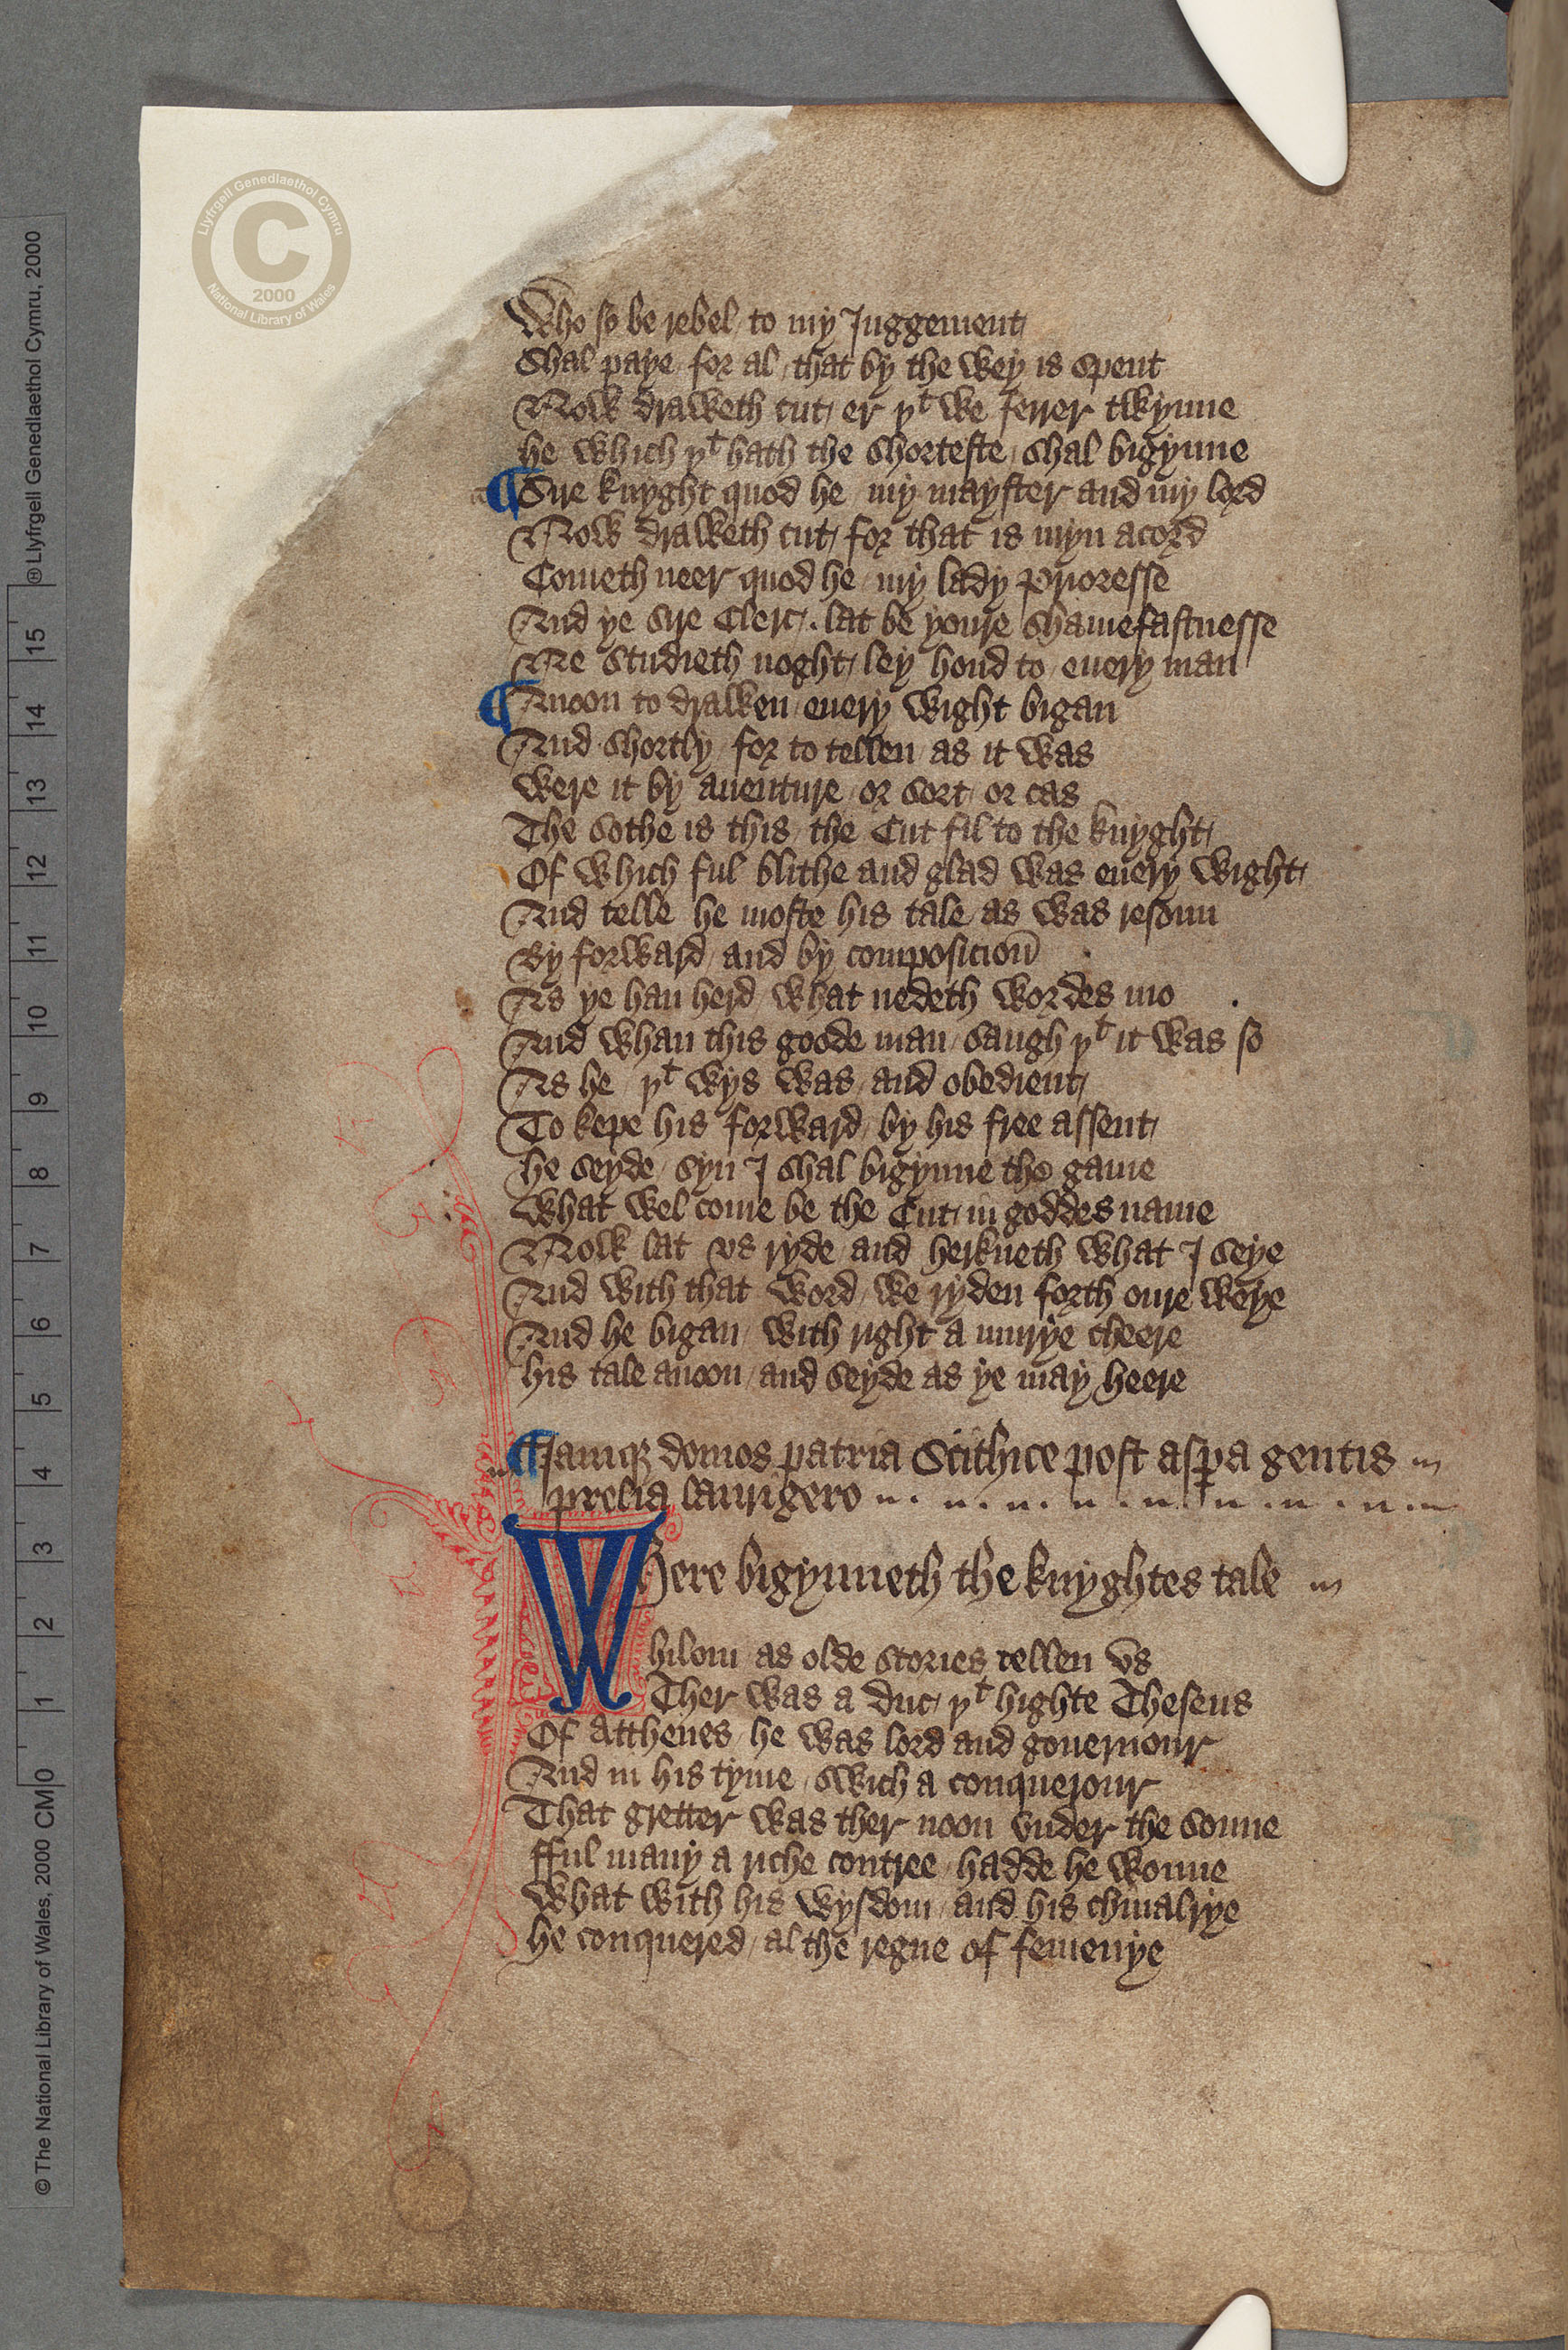 Who so be rebel / to my Juggement
Shal paye / for al / that by the wey is spent
Now draweth cut / er þᵗ we ferrer twynne
he which þᵗ hath the shorteste / shal bigynne
¶ Sire knyght quod he / my mayster and my lord
Now draweth cut / for that is myn acord
Cometh neer quod he / my lady Prioresse
And ye sire Clerc / . lat be youre shamefastnesse
Ne studieth noght / ley hond to / euery man
¶ Anoon to drawen / euery wight bigan
And shortly / for to tellen / as it was
were it by auenture / or sort / or cas
The sothe is this / the Cut fil to the knyght
Of which ful blithe and glad was euery wight
And telle he moste his tale / as was resoun
By forward / and by composicioū
As ye han herd / what nedeth wordes mo
And whan this goode man / saugh þᵗ it was so
As he þᵗ wys was / and obedient
To kepe his forward / by his free assent
he seyde / syn I shal bigynne the game
what wel come be the Cut / in goddes name
Now lat vs ryde / and herkneth what I seye
And with that word / we ryden forth oure weye
And he bigan / with right a murye cheere
his tale anoon / and seyde as ye may heere
¶ Jamqꝫ domos patria Scithice post asꝑa gentis
prelia laurigero
Here bigynneth the knyghtes tale
Whilom as olde stories tellen vs
Ther was a duc / þᵗ highte Theseus
Of Atthenes / he was lord and gouernour
And in his tyme / swich a conquerour
That gretter was ther noon vnder the sonne
fful many a riche contree / hadde he wonne
What with his wysdom / and his chiualrye
he conquered / al the regne of femenye
Llyfrgell Genedlaethol Cymru
C
2000
National Library of Wales
© The National Library of Wales, 2000
® Llyfrgell Genedlaethol Cymru, 2000
CM 0 1 2 3 4 5 6 7 8 9 10 11 12 13 14 15